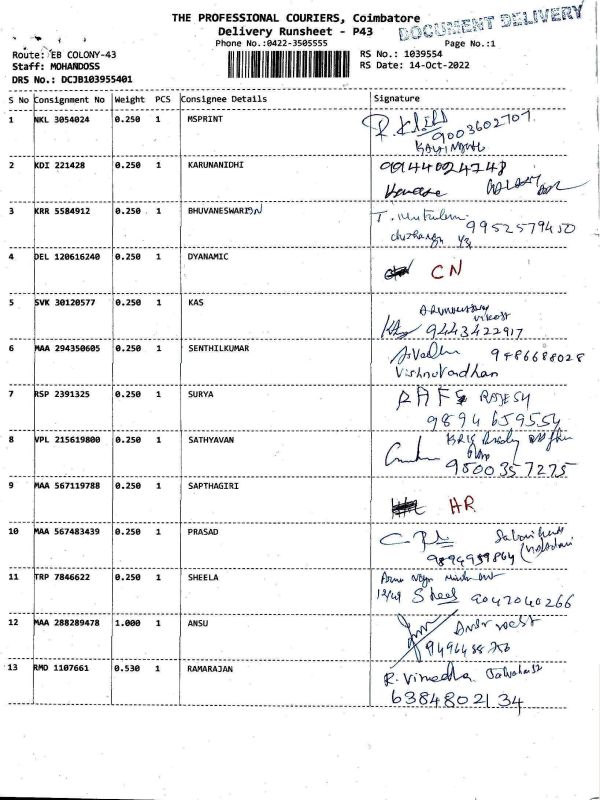 THE PROFESSIONAL COURIERS, Coimbatore
DOCUMENT DELIVERY
Delivery Runsheet - P43
Phone No.:0422-3505555
Page No.:1
Route: EB COLONY-43
RS No.: 1039554
Staff: MOHANDOSS
RS Date: 14-Oct-2022
DRS No.: DCJB103955401
S No Consignment No Weight PCS Consignee Details Signature
1 NKL 3054024 0.250 1 MSPRINT
9003602707
2 KDI 221428 0.250 1 KARUNANIDHI 9944024748
3 KRR 5584912 0.250 1 BHUVANESWARI
9952579450
4 DEL 120616240 0.250 1 DYANAMIC
CN
5 SVK 30120577 0.250 1 KAS
9443422917
6 MAA 294350605 0.250 1 SENTHILKUMAR 9486688028
Vishnuvardhan
7 RSP 2391325 0.250 1 SURYA
9894659554
8 VPL 215619800 0.250 1 SATHYAVAN
9800357275
9 MAA 567119788 0.250 1 SAPTHAGIRI
HR
10 MAA 567483439 0.250 1 PRASAD
9894939864
11 TRP 7846622 0.250 1 SHEELA
Sheel 9047040266
12 MAA 288289478 1.000 1 ANSU
13 RMD 1107661 0.530 1 RAMARAJAN
6384802134